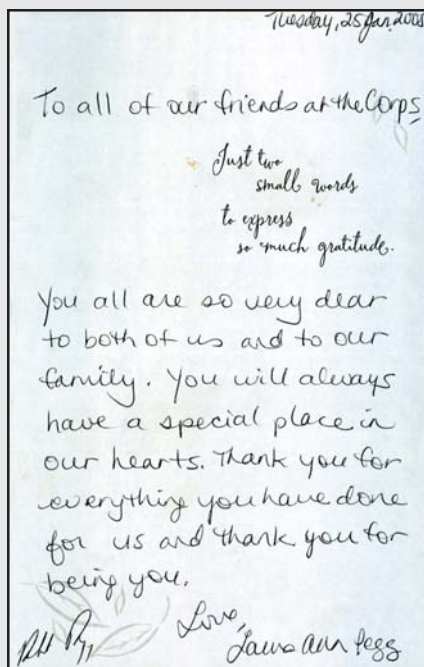 Tuesday, 25 Jan, 2005
To all of our friends at the Corps,
Just two
small words
to express
so much gratitude.
You all are so very dear
to both of us and to our
family. You will always
have a special place in
our hearts. Thank you for
everything you have done
for us and thank you for
being you.
Love,
Laura Ann Pegg